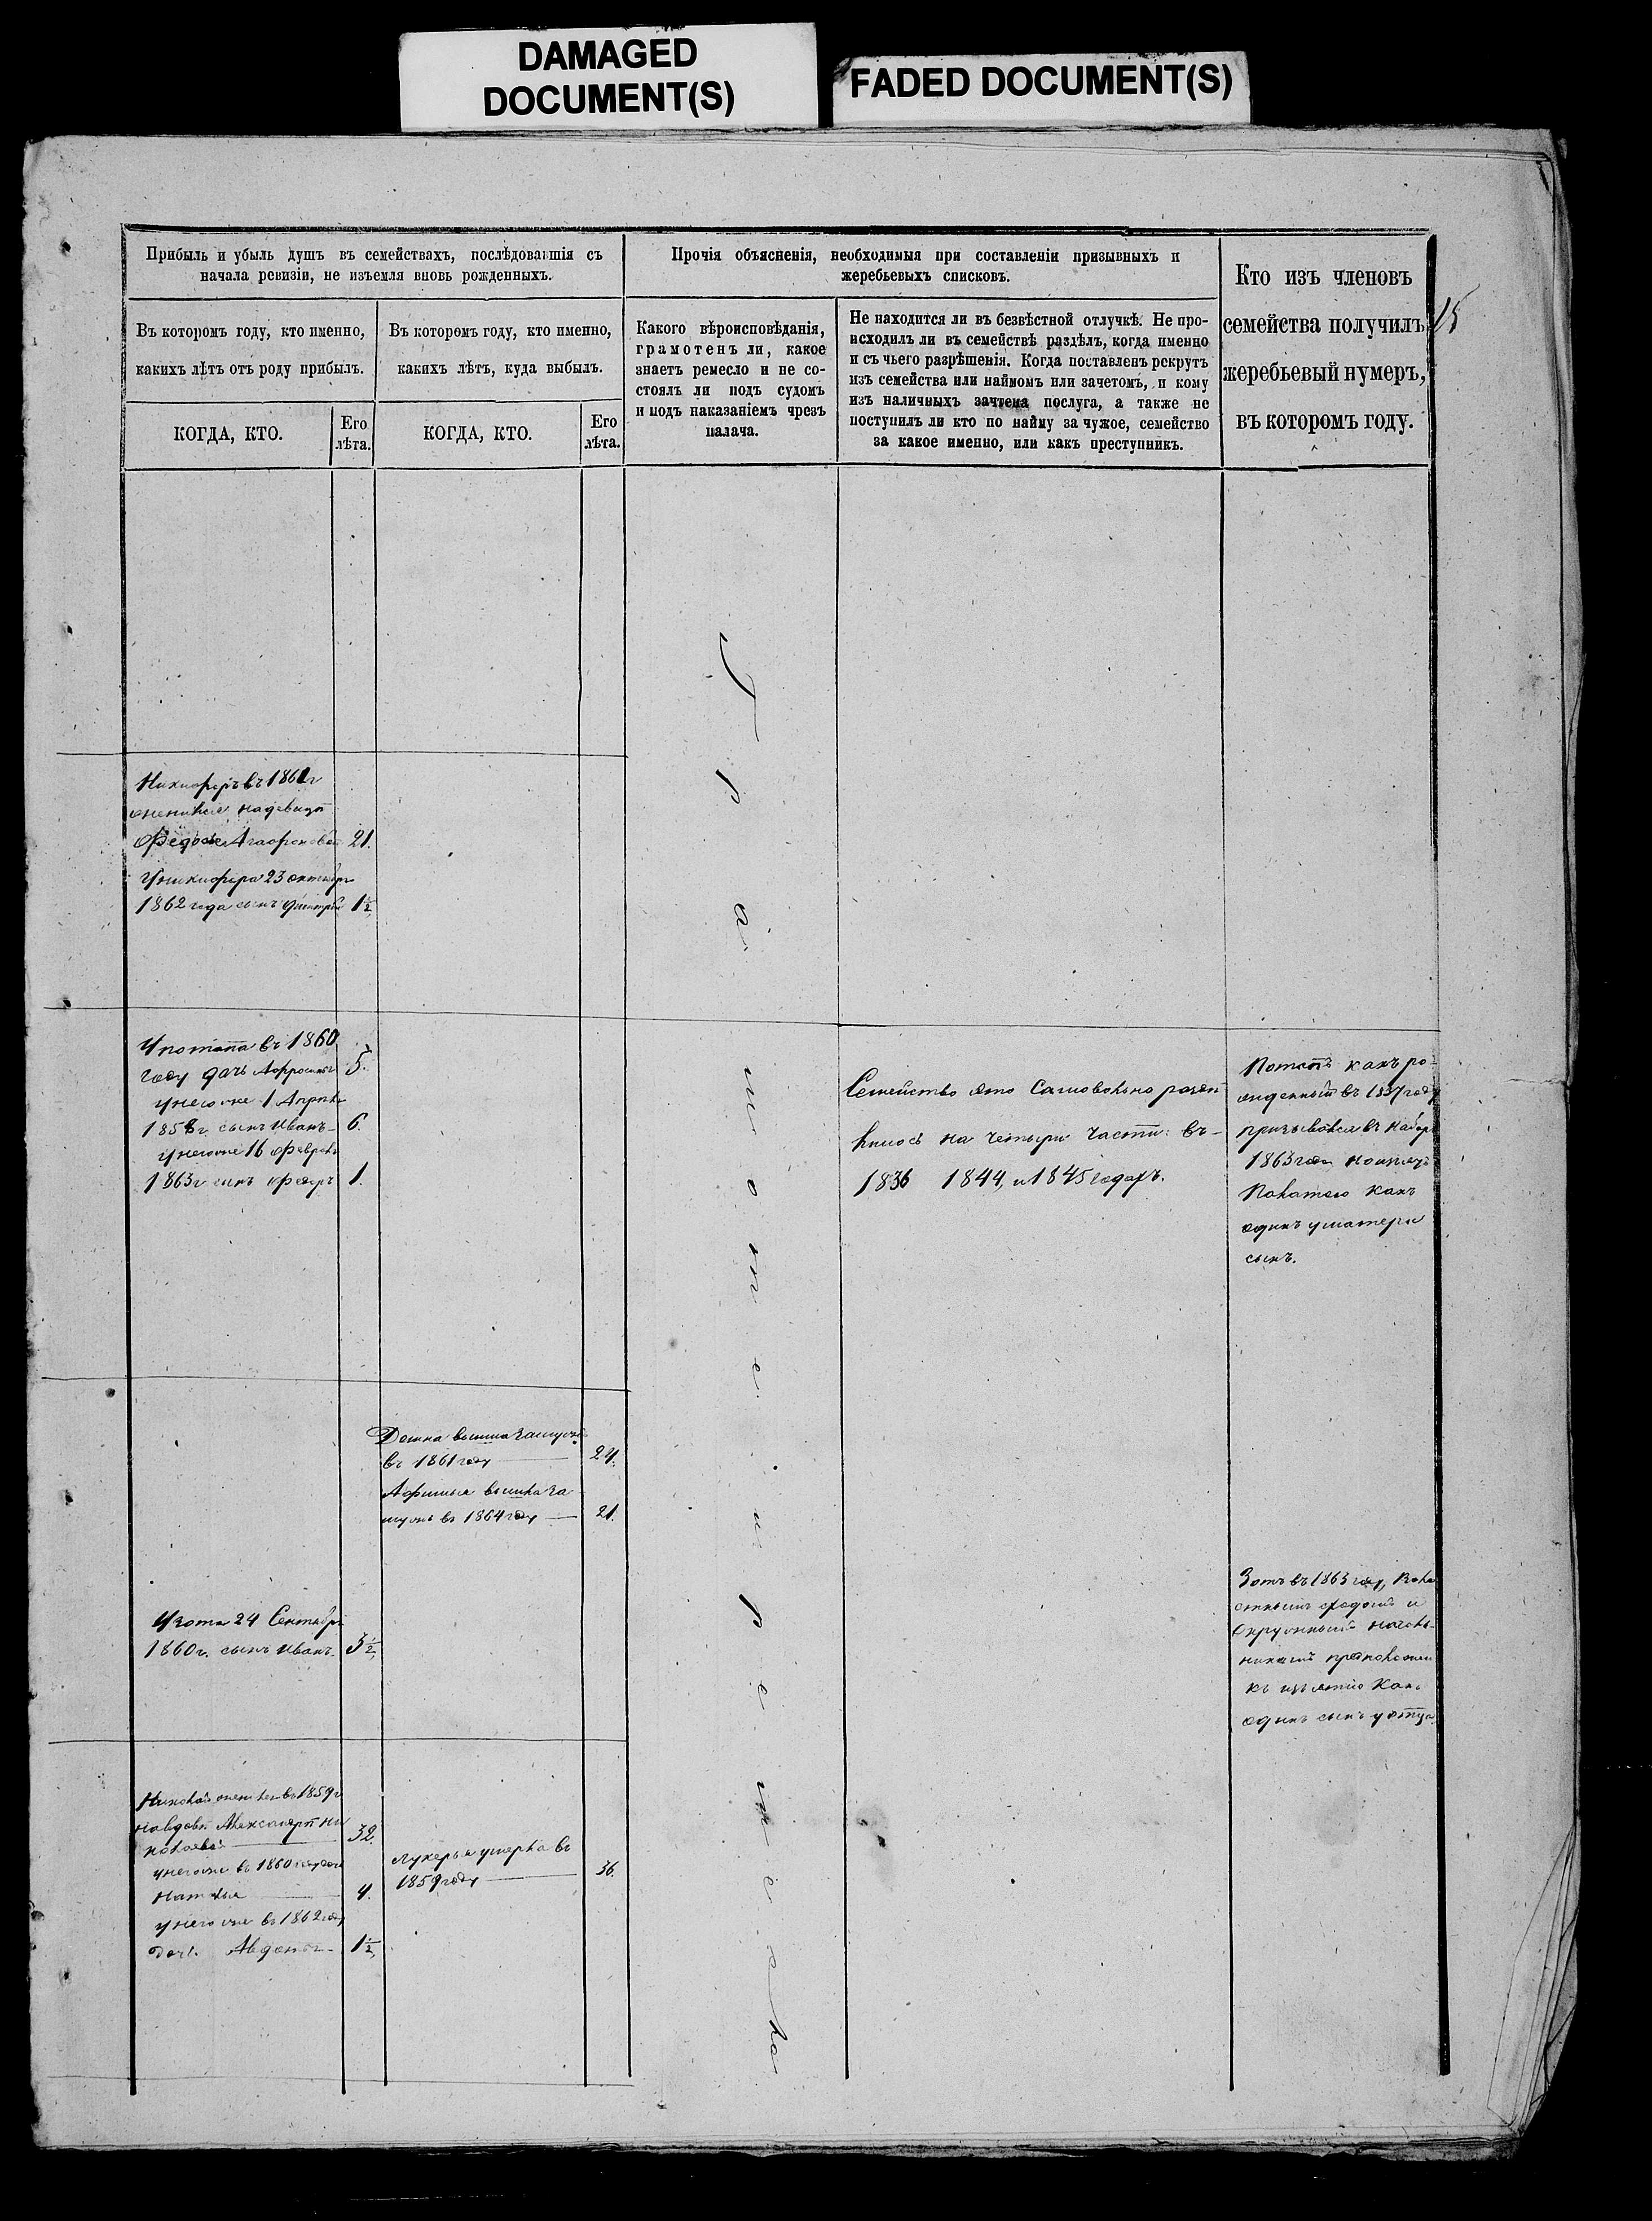 DAMAGED
DOCUMENT(S)
FADED DOCUMENT(S)
Прибыль и убыль душъ въ семействахъ, послѣдовавшія съ
начала ревизіи, не изъемля вновь рожденныхъ.
Прочія объясненія, необходимыя при составленіи призывныхъ и
жеребьевыхъ списковъ.
Кто изъ членовъ
семейства получилъ
жеребьевый нумеръ,
въ которомъ году.
15
Въ которомъ году, кто именно,
какихъ лѣтъ отъ роду прибылъ.
Въ которомъ году, кто именно,
какихъ лѣтъ, куда выбылъ.
Какого вѣроисповѣданія,
грамотенъ ли, какое
знаетъ ремесло и не со-
стоялъ ли подъ судомъ
и подъ наказаніемъ чрезъ
палача.
Не находится ли въ безвѣстной отлучкѣ. Не про-
исходилъ ли въ семействѣ раздѣлъ, когда именно
и съ чьего разрѣшенія. Когда поставленъ рекрутъ
изъ семейства или наймомъ или зачетомъ, и кому
изъ наличныхъ зачтена послуга, а также не
поступилъ ли кто по найму за чужое, семейство
за какое именно, или какъ преступникъ.
КОГДА, КТО.
Его
лѣта.
КОГДА, КТО.
Его
лѣта.
Никифоръ въ 1861г
женился на девицѣ
Федосье Агафоновой 21.
У никифора 23 октября
1862 года сынъ Дмитрій 1½
У потапа въ 1860
году дочь Афросинья 5.
у него же 1 Апрѣля
1858г. сынъ Иванъ 6.
у него же 16 Февраля
1863г сынъ Федоръ 1.
Семейство это Самовольно разде
лилось на четыри части въ
1836 1844, и 1845 годахъ.
Потапъ какъ ро
жденный въ 1837 году
призывался въ наборъ
1863 года но изъ
Какъ
одинъ у матери
сынъ.
Домна вышла замужъ
въ 1861 году 24.
Афимья вышла за
мужъ въ 1864 году 21.
У Зота 24 Сентября
1860г. сынъ Иванъ. 3½
Зотъ въ 1863 году, Воло
стнымъ сходомъ и
Окружнымъ началь-
никомъ предположен
къ изъятію Какъ
одинъ сынъ у отца
Николай женился въ 1859г
на вдовѣ Александрѣ Ни
колаевой 32.
у него же въ 1860 году дочь
Наталья 4.
у него же въ 1862 году
дочь Авдотья 1½
Лукерья умерла въ
1859 году 36.